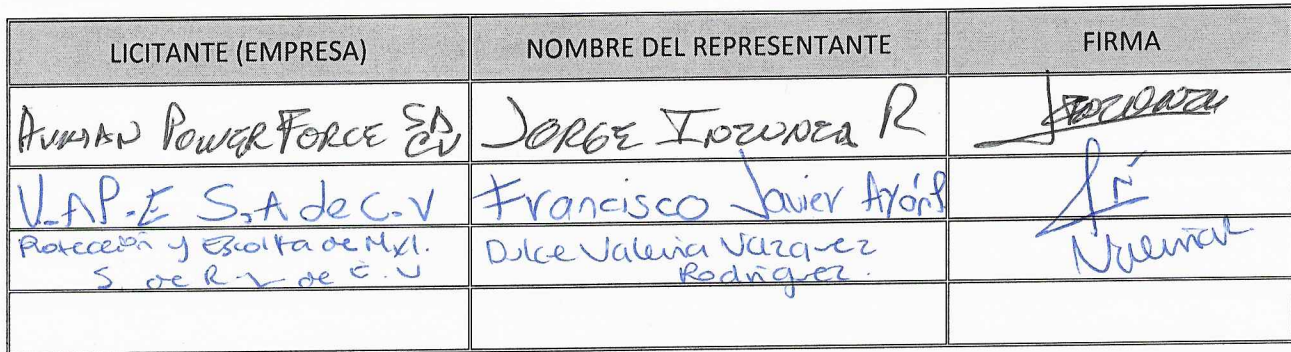 LICITANTE (EMPRESA) NOMBRE DEL REPRESENTANTE FIRMA
HUMAN POWER FORCE SA CV JORGE INZUNZA R
V.A.P.E S.A de C.V Francisco Javier Ayón P
Protección y Escolta de Mxl. Dulce Valeria Vázquez
S. de R.L de C.V Rodriguez.